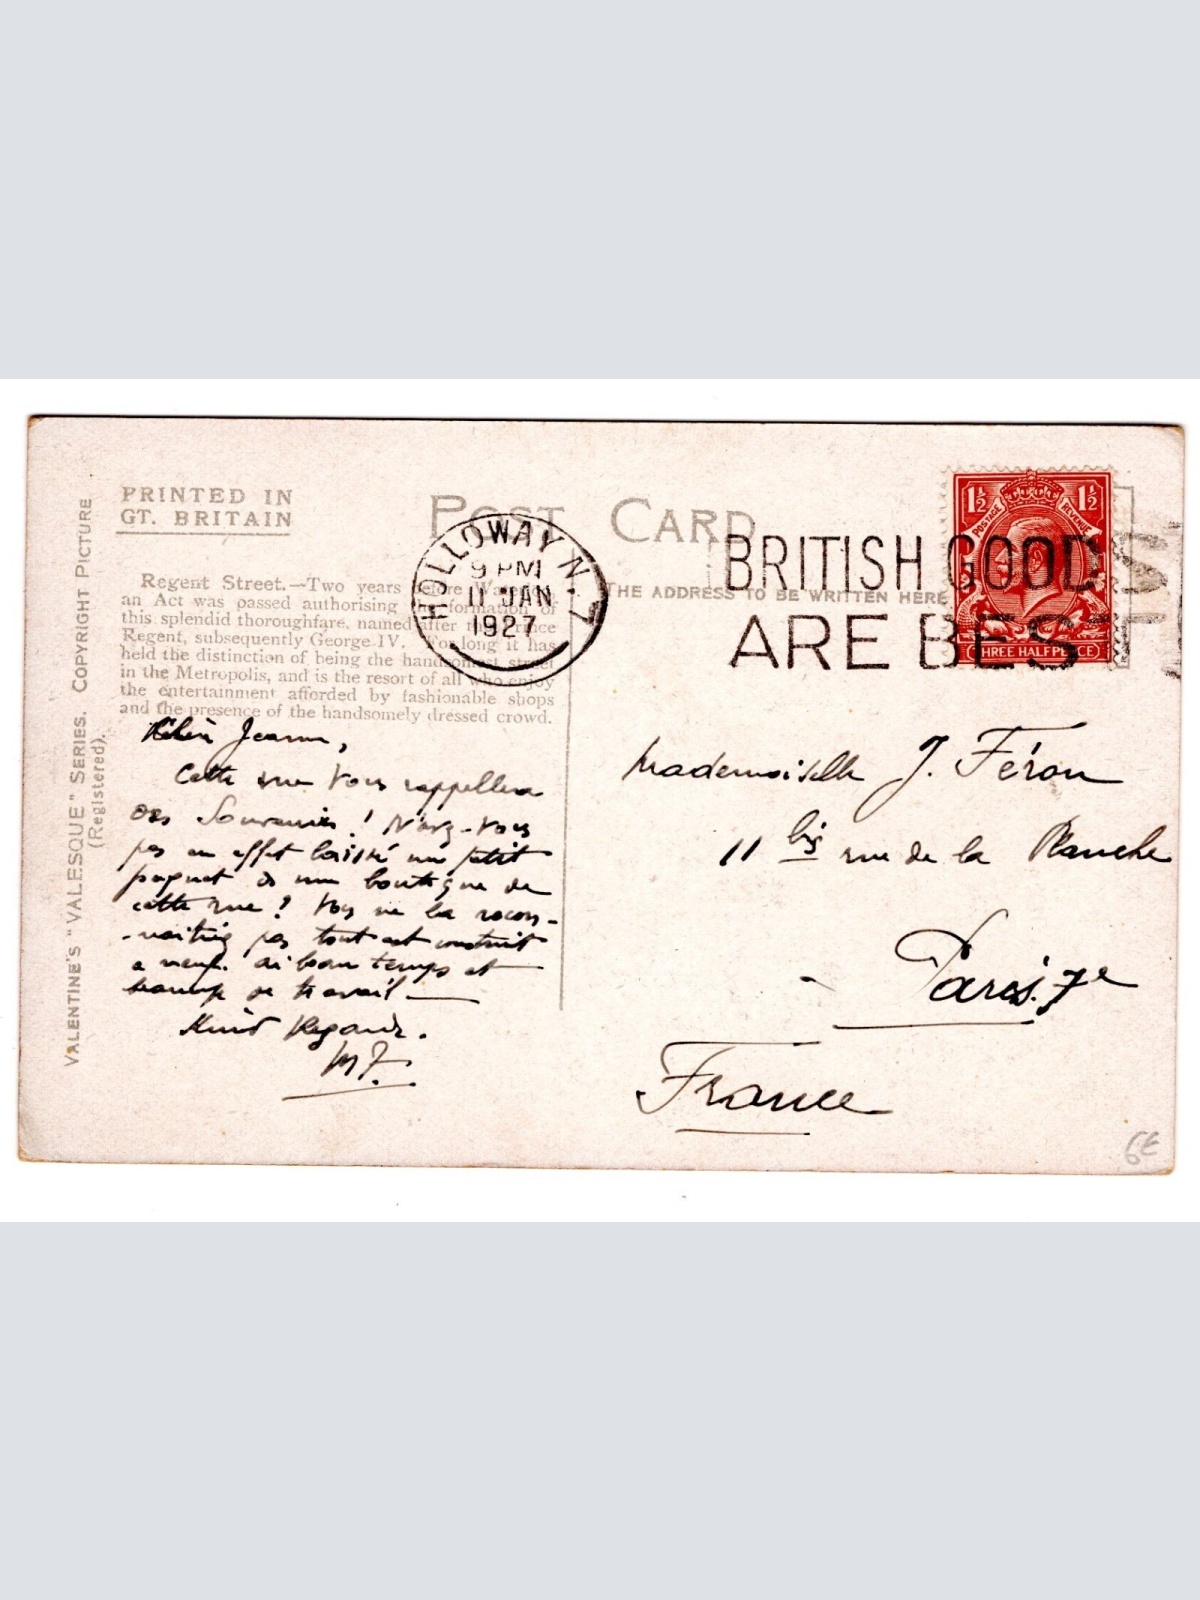 PRINTED IN
GT. BRITAIN
POST CARD
HOLLOWAY N.7
9 PM
11 JAN
1927
BRITISH GOODS
ARE BEST
1½ 1½
POSTAGE REVENUE
THREE HALFPENCE
THE ADDRESS TO BE WRITTEN HERE
Regent Street.—Two years before Wa
an Act was passed authorising the formation of
this splendid thoroughfare, named after the Prince
Regent, subsequently George IV. For long it has
held the distinction of being the handsomest street
in the Metropolis, and is the resort of all who enjoy
the entertainment afforded by fashionable shops
and the presence of the handsomely dressed crowd.
VALENTINE'S "VALESQUE" SERIES. COPYRIGHT PICTURE
(Registered).
Jeanne,
Cette rue vous rappellera
des Souvenirs! N'avez-vous
pas en effet laissé un petit
paquet ds une boutique de
cette rue? Vous ne la recon-
-naitriez pas tout est construit
a neuf. ai beau temps et
de travail —
Kind Regards.
M F.
Mademoiselle J. Féron
11 bis rue de la Planche
Paris. 7e
France
6€